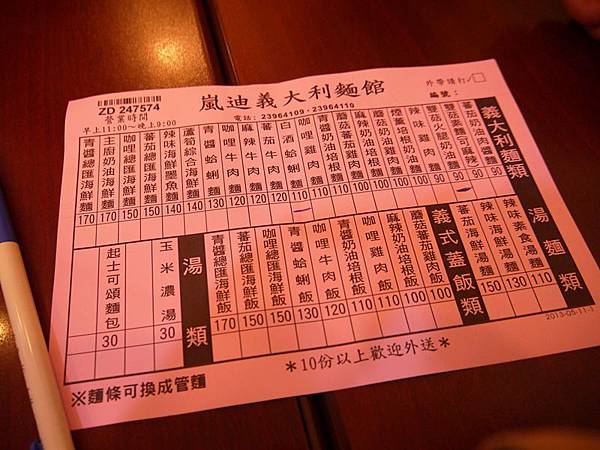 ZD 247574
營業時間
早上11:00～晚上9:00
嵐迪義大利麵館
電話：23964109・23964110
外帶請打✓
編號：
義大利麵類
番茄奶油肉醬麵 90
雙菇火腿奶油麵 90
辣味雞肉麵
煙薰培根奶油麵 100
麻辣奶油培根麵 100
青醬奶油培根麵 110
咖哩雞肉麵 110
白酒蛤蜊麵 110
番茄牛肉麵 120
咖哩牛肉麵 120
青醬蛤蜊麵 130
蘆筍綜合海鮮麵 140
辣味海鮮墨魚麵 140
番茄總匯海鮮麵 150
咖哩總匯海鮮麵 150
主廚奶油海鮮麵 170
青醬總匯海鮮麵 170
湯麵類
辣味素食湯麵 110
辣味海鮮湯麵 130
番茄海鮮湯麵 150
義式蓋飯類
蘑菇番茄雞肉飯 100
麻辣奶油培根飯 100
咖哩雞肉飯 110
青醬奶油培根飯 110
咖哩牛肉飯 120
青醬蛤蜊飯 130
咖哩總匯海鮮飯 150
番茄總匯海鮮飯 150
青醬總匯海鮮飯 170
湯類
玉米濃湯 30
起士可頌麵包 30
2013-05-11-1
※麵條可換成管麵
＊10份以上歡迎外送＊